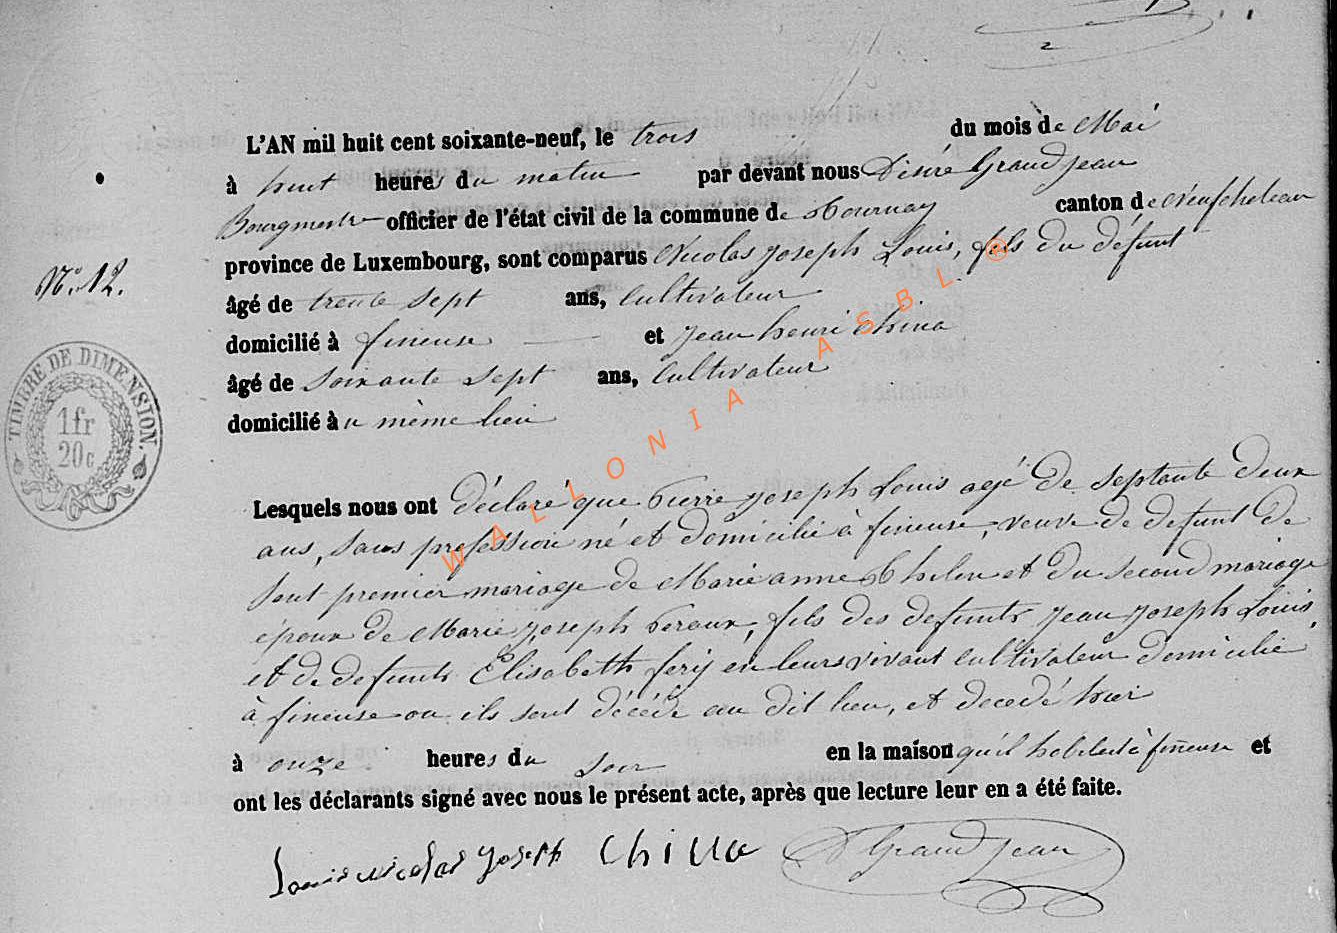 L'AN mil huit cent soixante-neuf, le trois du mois de Mai
à huit heures du matin par devant nous Désiré Grandjean
Bourgmestre officier de l'état civil de la commune de Tournay canton de Neufchateau
province de Luxembourg, sont comparus Nicolas Joseph Louis, fils du défunt
N° 12.
âgé de trente sept ans, cultivateur
domicilié à fineuse et Jean henri China
âgé de soixante sept ans, cultivateur
domicilié à u même lieu
TIMBRE DE DIMENSION.
1fr
20c
WALLONIA ASBL ®
Lesquels nous ont déclaré que Pierre Joseph Louis agé de septante deux
ans, sans profession né et domicilié à fineuse, veuve de defunt de
sont premier mariage de Marie anne et du second mariage
époux de Marie Joseph Peraux, fils des defunts Jean Joseph Louis,
et de defunts Elisabeth fery en leurs vivant cultivateur domicilié
à fineuse ou ils sont décédé au dit lieu, et decedé hier
à onze heures du soir en la maison qu'il habitait à fineuse et
ont les déclarants signé avec nous le présent acte, après que lecture leur en a été faite.
Louis Nicolas Joseph China D Grandjean